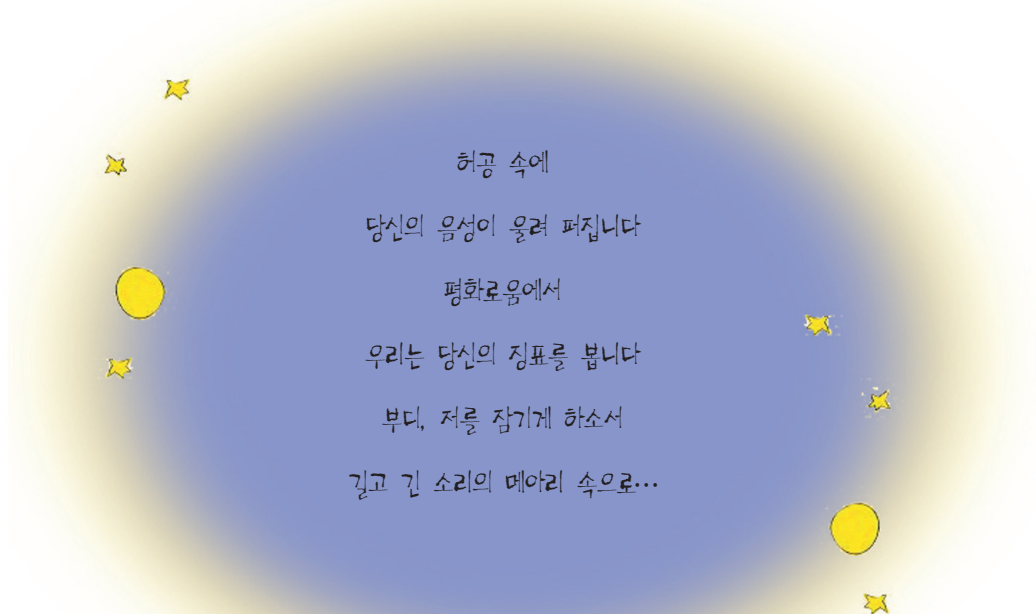 허공 속에
당신의 음성이 울려 퍼집니다
평화로움에서
우리는 당신의 징표를 봅니다
부디, 저를 잠기게 하소서
길고 긴 소리의 메아리 속으로…